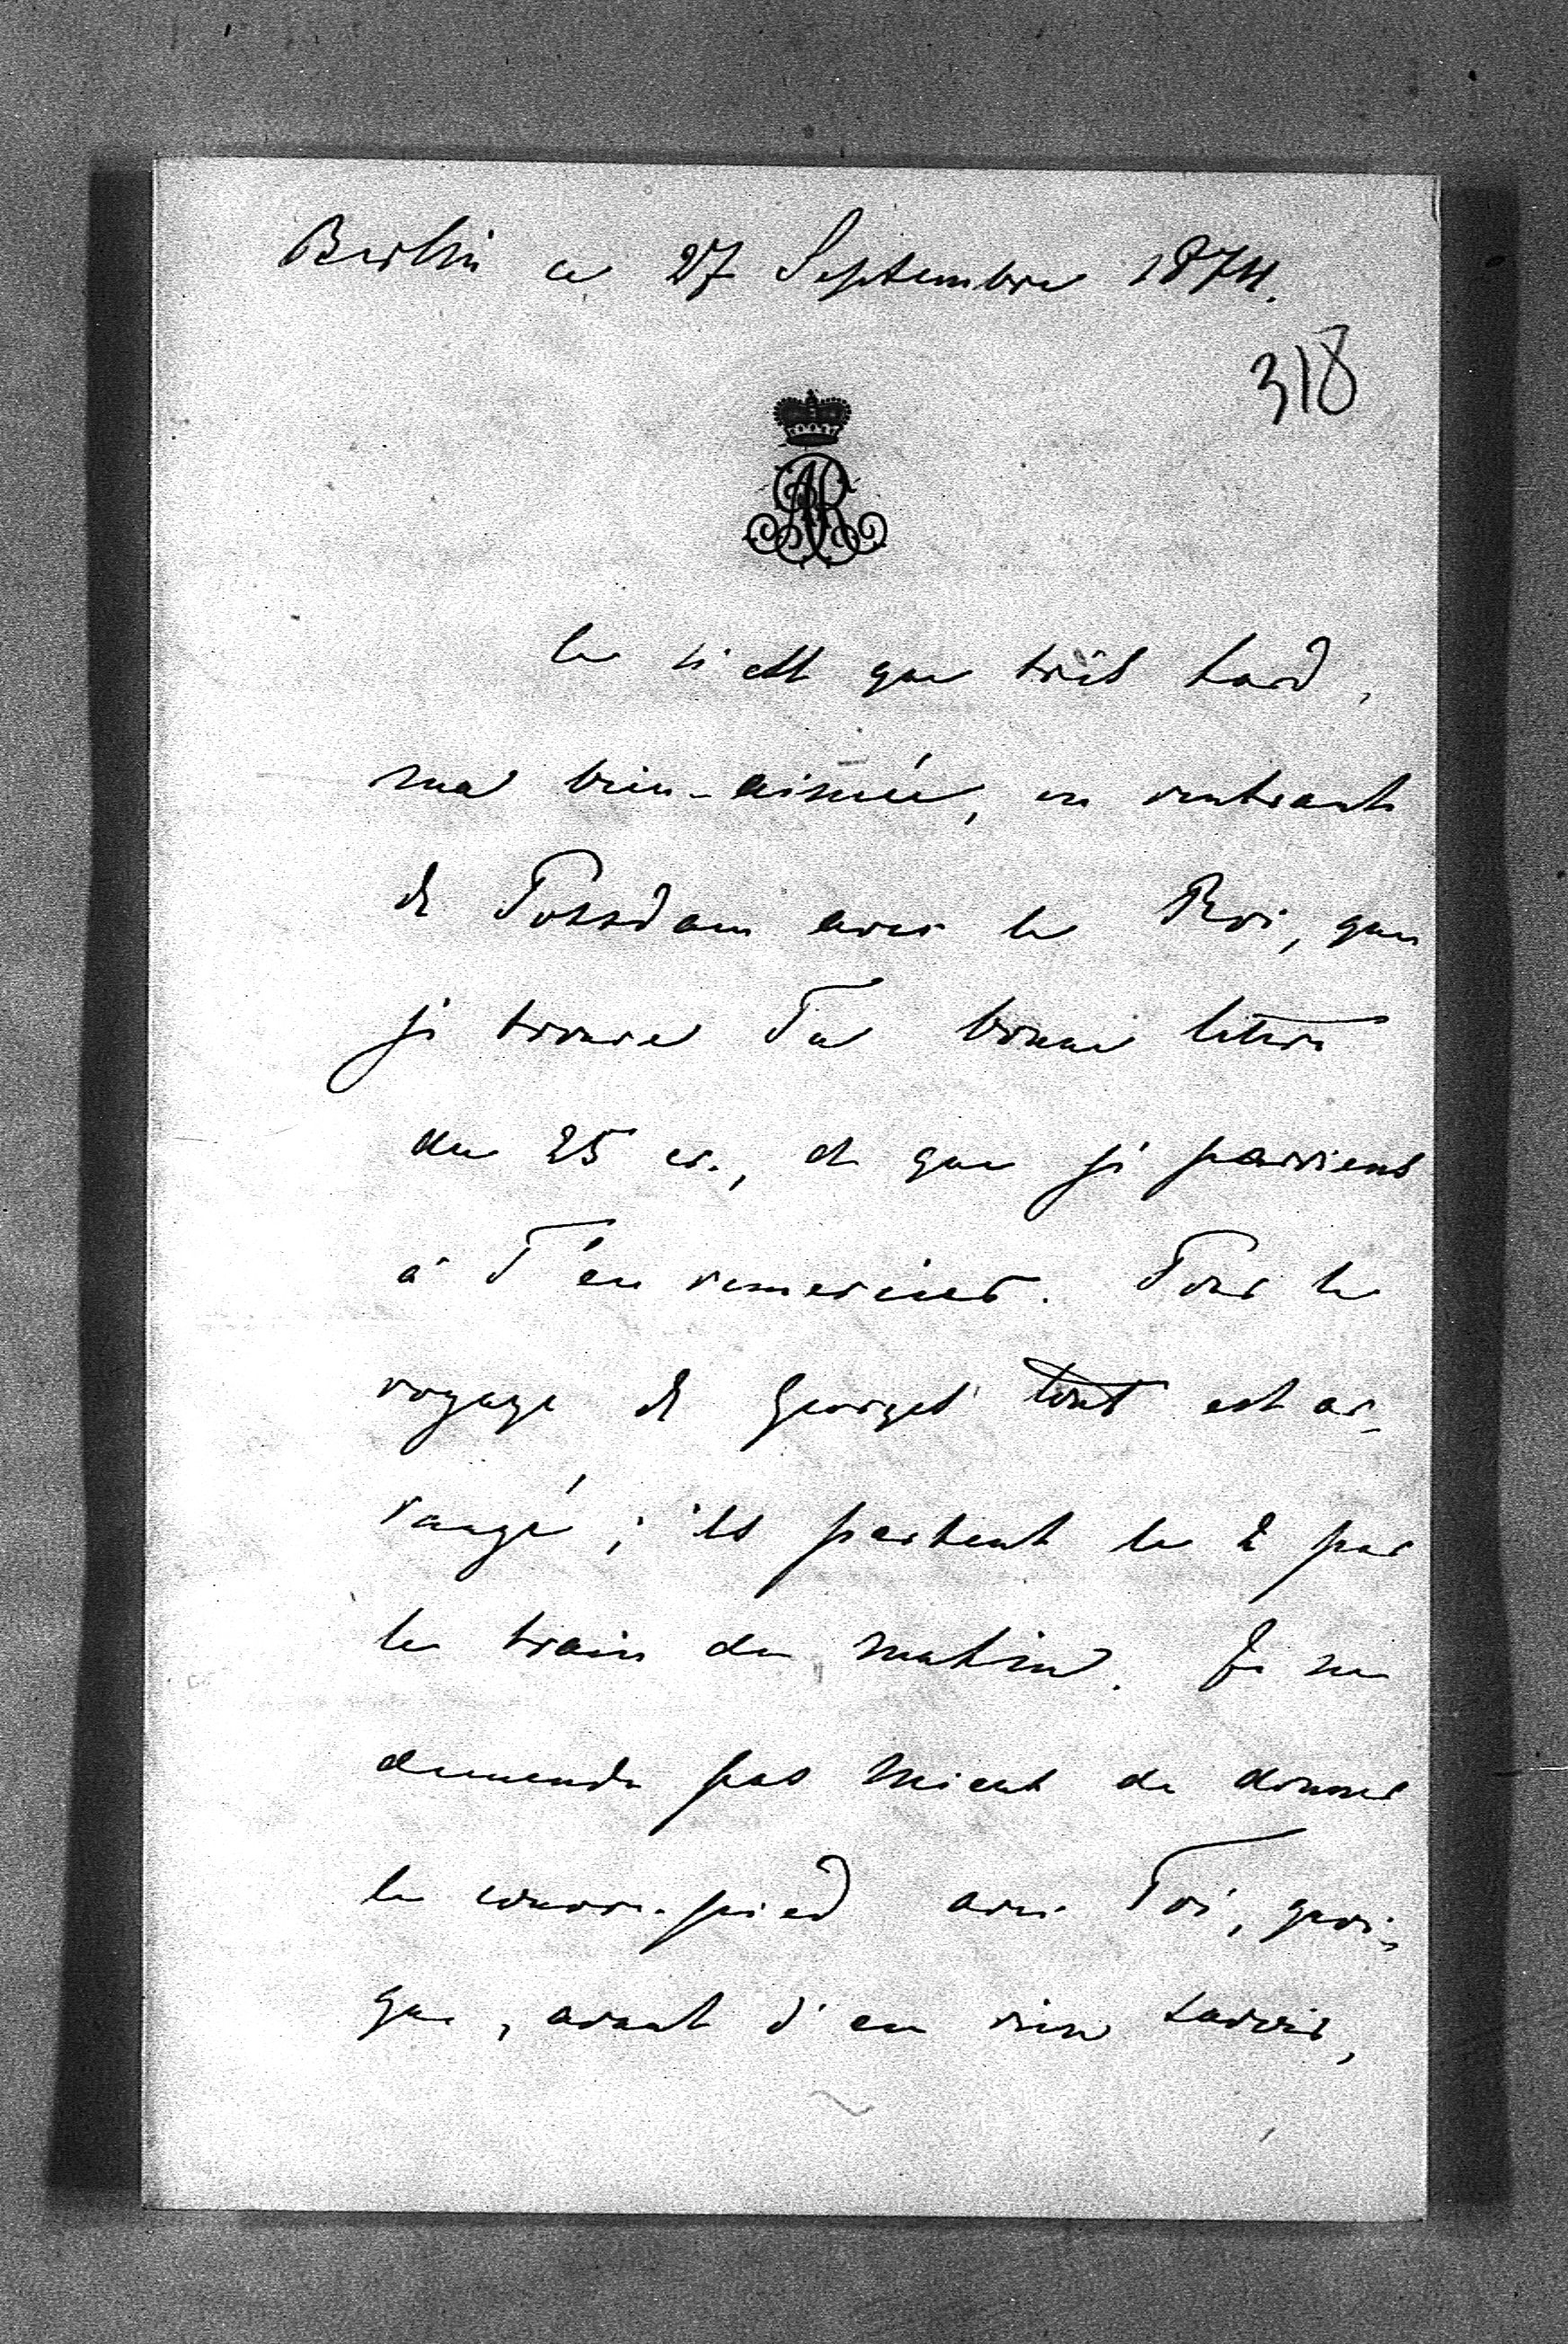 Berlin ce 27 Septembre 1874.
318
AR
Ce n'est que très tard,
ma bien-aimée, en rentrant
de Potsdam avec le Roi, que
je trouve Ta bonne lettre
du 25 cr., et que je parviens
à T'en remercier. Pour le
voyage de Georges tout est ar-
rangé; ils partent le 2 par
le train du matin. Je ne
demende pas mieux de donner
le contre-pied avec Toi, quoi-
que, avant d'en rien savoir,